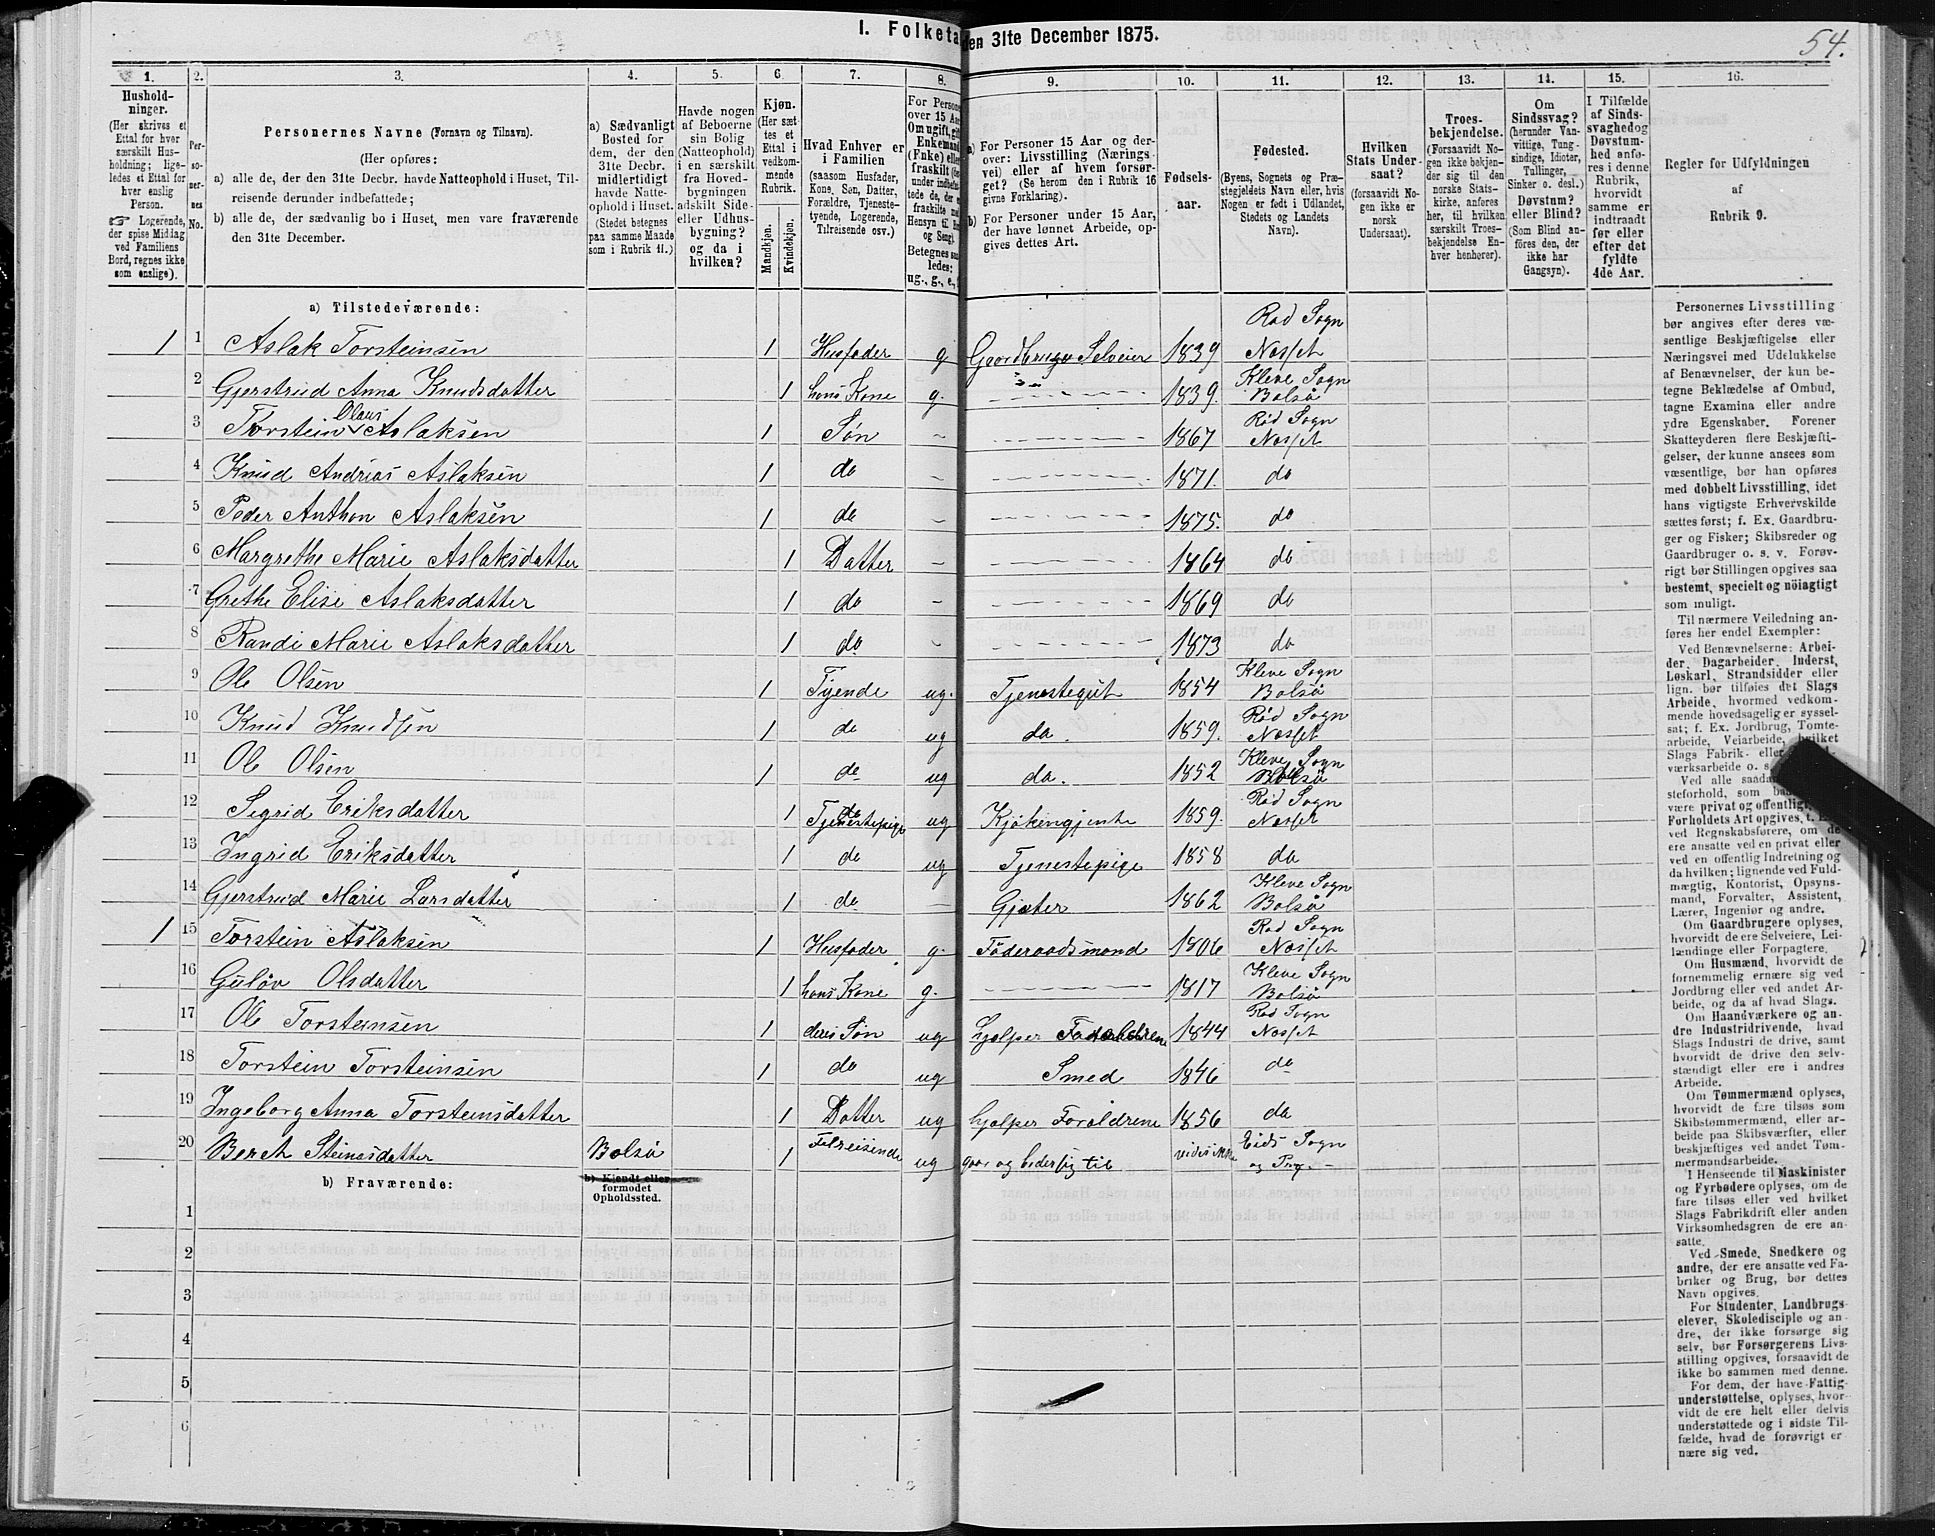 I. Folketa den 31te December 1875.
54.
1. 2. 3. 4. 5. 6. 7. 8. 9. 10. 11. 12. 13. 14. 15. 16.
Husholdninger. (Her skrives et Ettal for hver særskilt Husholdning; ligeledes et Ettal for hver enslig Person.
☞ Logerende, der spise Middag ved Familiens Bord, regnes ikke som enslige).
Personernes No.
Personernes Navne (Fornavn og Tilnavn).
(Her opføres:
a) alle de, der den 31te Decbr. havde Natteophold i Huset, Tilreisende derunder indbefattede;
b) alle de, der sædvanlig bo i Huset, men vare fraværende den 31te December.
a) Sædvanligt Bosted for dem, der den 31te Decbr. midlertidigt havde Natteophold i Huset. (Stedet betegnes paa samme Maade som i Rubrik 11.)
Havde nogen af Beboerne sin Bolig (Natteophold) i en særskilt fra Hovedbygningen adskilt Side- eller Udhusbygning? og da i hvilken?
Kjøn. (Her sættes et Ettal i vedkommende Rubrik.
Mandkjøn. Kvindekjøn.
Hvad Enhver er i Familien (saasom Husfader, Kone, Søn, Datter, Forældre, Tjenestetyende, Logerende, Tilreisende osv.)
For Persone over 15 Aar Om ugift, gift Enkemand (Enke) elle fraskilt
Betegnes saaledes; ug., g., e.,
a) For Personer 15 Aar og derover: Livsstilling (Næringsvei) eller af hvem forsørget? (Se herom den i Rubrik 16 givne Forklaring).
b) For Personer under 15 Aar, der have lønnet Arbeide, opgives dettes Art.
Fødselsaar.
Fødested. (Byens, Sognets og Præstegjeldets Navn eller, hvis Nogen er født i Udlandet, Stedets og Landets Navn).
Hvilken Stats Undersaat? (forsaavidt Nogen ikke er norsk Undersaat).
Troesbekjendelse. (Forsaavidt Nogen ikke bekjender sig til den norske Statskirke, anføres her, til hvilken særskilt Troesbekjendelse Enhver henhører).
Om Sindssvag? (herunder Vanvittige, Tungsindige, Idioter, Tullinger, Sinker o. desl.) Døvstum? eller Blind? (Som Blind anføres den, der ikke har Gangsyn).
I Tilfælde af Sindssvaghed og Døvstumhed anføres i denne Rubrik, hvorvidt samme er indtraadt før eller efter det fyldte 4de Aar.
Regler for Udfyldningen af Rubrik 9.
a) Tilstedeværende:
1 1 Aslak Torsteinsen 1 Husfader g Gaardbruger Selveier 1839 Rød Sogn Nesset
2 Gjerstrud Anna Knudsdatter 1 hans Kone g. 1839. Kleve Sogn Bolsø
3 Torstein Olaus Aslaksen 1 Søn 1867 Rød Sogn Nesset
4 Knud Andrias Aslaksen 1 do 1871. do
5 Peder Anthon Aslaksen 1 do 1875. do
6 Margrethe Marie Aslaksdatter 1 Datter 1864 do
7 Grethe Elise Aslaksdatter 1 do 1869 do
8 Randi Marie Aslaksdatter 1 do 1873 do
9 Ole Olsen 1 Tyende ug. Tjenestegut 1854 Kleve Sogn Bolsø
10 Knud Knudsen 1 do ug do. 1859. Rød Sogn Nesset
11 Ole Olsen 1 do ug do. 1852 Kleve Sogn Bolsø
12 Sigrid Eriksdatter 1 do Tjenestepige ug Kjøkengjente 1859. Rød Sogn Nesset
13 Ingrid Eriksdatter 1 do ug Tjenestepige 1858 do
14 Gjerstrud Marie Larsdatter 1 do Gjæter 1862 Kleve Sogn Bolsø
1 15 Torstein Aslaksen 1 Husfader g. Føderaadsmand 1806 Rød Sogn Nesset
16 Guløv Olsdatter 1 hans Kone g. 1817 Kleve Sogn Bolsø
17 Ole Torsteinsen 1 deres Søn ug hjælper Foræeldrene 1844 Rød Sogn Nesset
18 Torstein Torsteinsen 1 do ug Smed 1846 do
19 Ingeborg Anna Torsteinsdatter 1 Datter ug hjælper Forældrene 1856 do
20 Bereth Steinasdatter Bolsø 1 Tilreisende ug gaar og beder sig til vides ikke Eids Sogn og Prg.
b) Fraværende:
b) Kjendt eller formodet Opholdssted.
1
2
3
4
5
6
Personernes Livsstilling bør angives efter deres væsentlige Beskjæftigelse eller Næringsvei med Udelukkelse af Benævnelser, der kun betegne Beklædelse af Ombud, tagne Examina eller andre ydre Egenskaber. Forener Skatteyderen flere Beskjæftigelser, der kunne ansees som væsentlige, bør han opføres med dobbelt Livsstilling, idet hans vigtigste Erhvervskilde sættes først; f. Ex. Gaardbruger og Fisker; Skibsreder og Gaardbruger o. s. v. Forøvrigt bør Stillingen opgives saa bestemt, specielt og nöiagtigt som muligt.
Til nærmere Veiledning anføres her endel Exempler:
Ved Benævnelserne: Arbeider, Dagarbeider, Inderst, Løskarl, Strandsidder eller lign. bør tilføies det Slags Arbeide, hvormed vedkommende hovedsagelig er sysselsat; f. Ex. Jordbrug, Tomtearbeide, Veiarbeide, hvilket Slags Fabrik- eller
Ved alle
være privat og offentlig
Forholdets Art opgives, t. E. ved Regnskabsførere, om de ere ansatte ved en privat eller ved en offentlig Indretning og da hvilken; lignende ved Fuldmægtig, Kontorist, Opsynsmand, Forvalter, Assistent, Lærer, Ingeniør og andre.
Om Gaardbrugere oplyses, hvorvidt de ere Selveiere, Leilændinge eller Forpagtere.
Om Husmænd, hvorvidt de fornemmelig ernære sig ved Jordbrug eller ved andet Arbeide, og da af hvad Slags.
Om Haandværkere og andre Industridrivende, hvad Slags Industri de drive, samt hvorvidt de drive den selvstændigt eller ere i andres Arbeide.
Om Tømmermænd oplyses, hvorvidt de fare tilsøs som Skibstømmermænd, eller arbeide paa Skibsværfter, eller beskjæftiges ved andet Tømmermandsarbeide.
I Henseende til Maskinister og Fyrbødere oplyses, om de fare tilsøs eller ved hvilket Slags Fabrikdrift eller anden Virksomhedsgren de ere ansatte.
Ved Smede, Snedkere og andre, der ere ansatte ved Fabriker og Brug, bør dettes Navn opgives.
For Studenter, Landbrugselever, Skoledisciple og andre, der ikke forsørge sig selv, bør Forsørgerens Livsstilling opgives, forsaavidt de ikke bo sammen med denne.
For dem, der have Fattigunderstøttelse, oplyses, hvorvidt de ere helt eller delvis understøttede og i sidste Tilfælde, hvad de forøvrigt ernære sig ved.